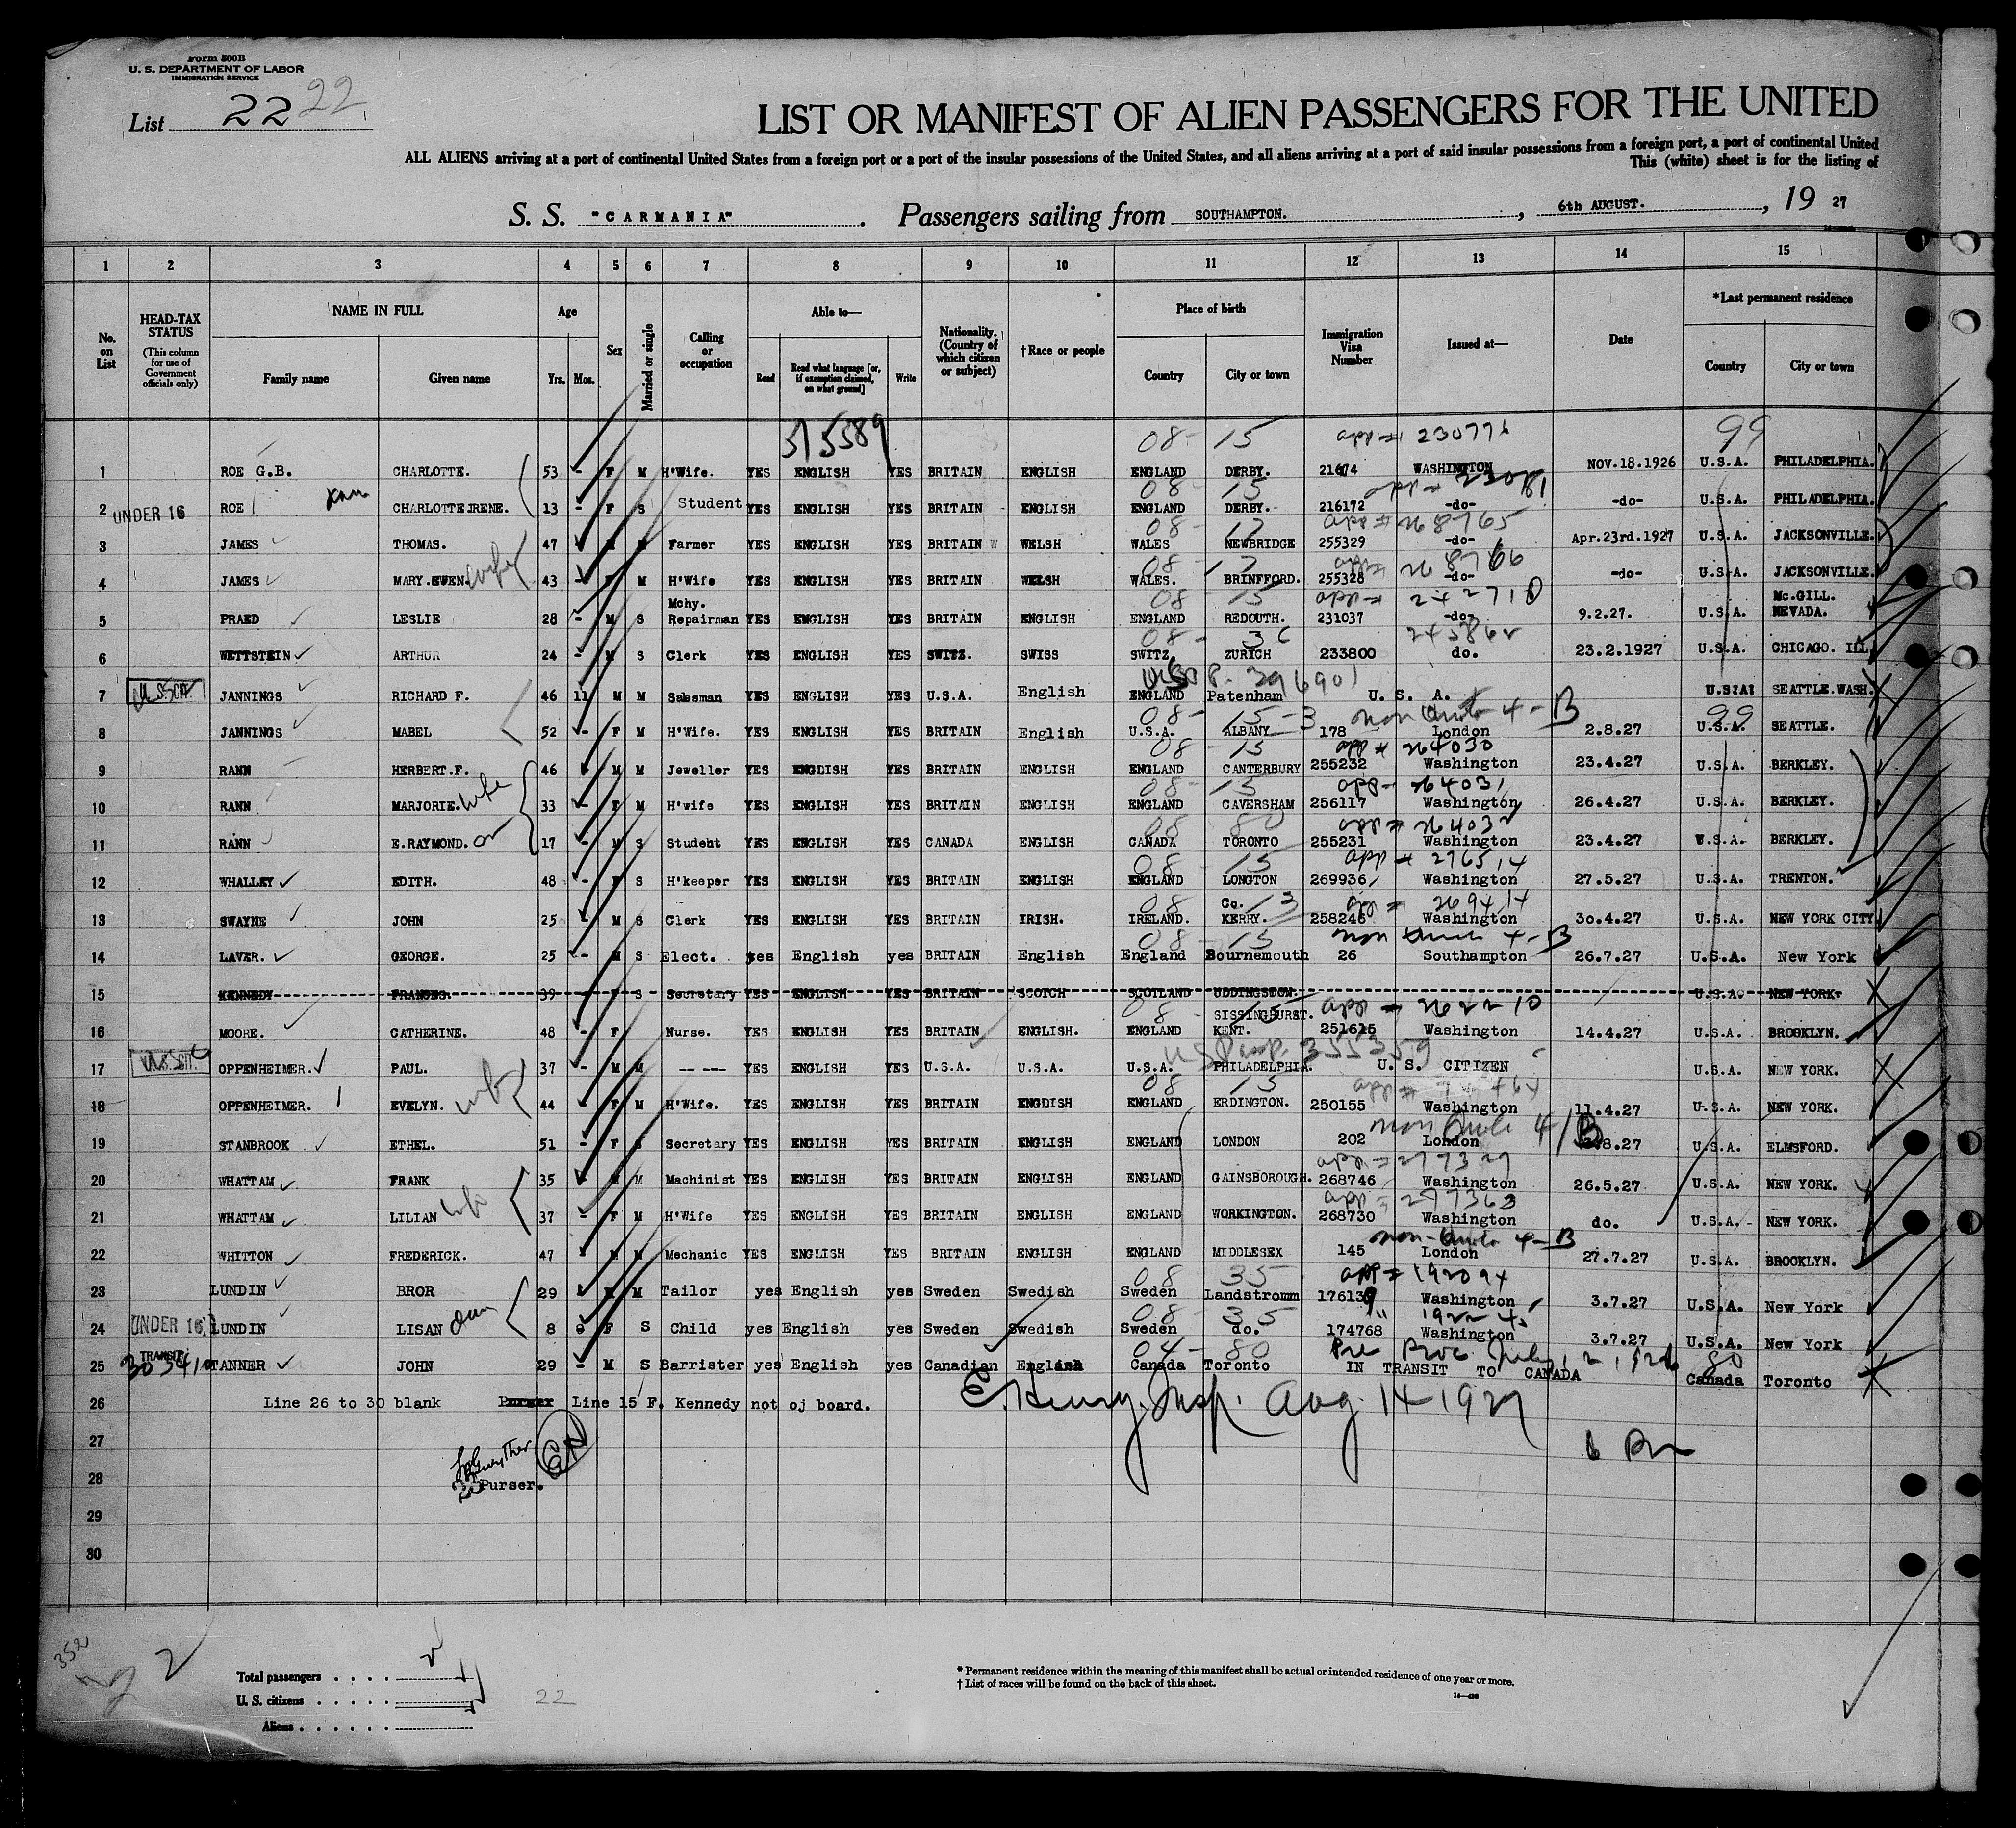 Form 500B
U. S. DEPARTMENT OF LABOR
IMMIGRATION SERVICE
List 22 22
LIST OR MANIFEST OF ALIEN PASSENGERS FOR THE UNITED
ALL ALIENS arriving at a port of continental United States from a foreign port or a port of the insular possessions of the United States, and all aliens arriving at a port of said insular possessions from a foreign port, a port of continental United
This (white) sheet is for the listing of
S. S. "CARMANIA". Passengers sailing from SOUTHAMPTON., 6th AUGUST., 19 27
1 2 3 4 5 6 7 8 9 10 11 12 13 14 15
No. on List
HEAD-TAX STATUS (This column for use of Government officials only)
NAME IN FULL Family name Given name
Age Yrs. Mos.
Sex
Married or single
Calling or occupation
Able to— Read Read what language [or, if exemption claimed, on what ground] Write
Nationality. (Country of which citizen or subject)
†Race or people
Place of birth Country City or town
Immigration Visa Number
Issued at—
Date
*Last permanent residence Country City or town
315589 08- 15 app # 230776 99
1 ROE G.B. CHARLOTTE. 53 - F M H'Wife. YES ENGLISH YES BRITAIN ENGLISH ENGLAND DERBY. 21674 WASHINGTON NOV.18.1926 U.S.A. PHILADELPHIA.
08- 15
2 UNDER 16 ROE CHARLOTTE IRENE. 13 - F S Student YES ENGLISH YES BRITAIN - ENGLISH ENGLAND DERBY.- 216172 -do- -do- U.S.A. PHILADELPHIA.
08- 17 app # 268765
3 JAMES THOMAS. 47 M M Farmer YES ENGLISH YES BRITAIN W WELSH WALES NEWBRIDGE 255329 -do- Apr.23rd.1927 U.S.A. JACKSONVILLE.
08- 17 app # 268766
4 JAMES MARY.GWEN. wife 43 - F M H'Wife YES ENGLISH YES BRITAIN WELSH WALES. BRINFFORD. 255328 -do- -do- U.S.A. JACKSONVILLE.
08- 15
5 PRAED LESLIE 28 - M S Mchy. Repairman YES ENGLISH YES BRITAIN ENGLISH ENGLAND REDOUTH. 231037 -do- 9.2.27. U.S.A. Mc.GILL. NEVADA.
08- 36
6 WETTSTEIN ARTHUR 24 - M S Clerk YES ENGLISH YES SWITZ. SWISS SWITZ. ZURICH 233800 do. 23.2.1927 U.S.A. CHICAGO. ILL
396901
7 U.S.CIT. JANNINGS RICHARD F. 46 11 M M Salesman YES ENGLISH YES U.S.A. English ENGLAND Patenham U. S. A. U.S.A. SEATTLE.WASH.
08- 15-3 non Quota 4-B 99
8 JANNINGS MABEL 52 - F M H'Wife. YES ENGLISH YES BRITAIN English U.S.A. ALBANY 178 London 2.8.27 U.S.A. SEATTLE.
08- 15 app # 264030
9 RANN HERBERT.F. 46 M M Jeweller YES ENGDISH YES BRITAIN ENGLISH ENGLAND CANTERBURY 255232 Washington 23.4.27 U.S.A. BERKLEY.
08- 15 app- 264031
10 RANN MARJORIE. wife 33 - F M H'wife YES ENGLISH YES BRITAIN ENGLISH ENGLAND CAVERSHAM 256117 Washington 26.4.27 U.S.A. BERKLEY.
08 80 app # 264032
11 RANN E.RAYMOND. 17 - M S Student YES ENGLISH YES CANADA ENGLISH CANADA TORONTO 255231 Washington 23.4.27 U.S.A.- BERKLEY.
08- 15 app # 276514
12 WHALLEY EDITH. 48 - F S H'keeper YES ENGLISH YES BRITAIN ENGLISH ENGLAND LONGTON 269936 Washington 27.5.27 U.S.A. TRENTON.
08 13 app # 269414
13 SWAYNE JOHN 25 - M S Clerk YES ENGLISH YES BRITAIN IRISH. IRELAND. Co. KERRY. 258246 Washington 30.4.27 U.S.A. NEW YORK CITY
08- 15 non Quota 4-B
14 LAVER. GEORGE. 25 - M S Elect. yes English yes BRITAIN English England Bournemouth 26 Southampton 26.7.27 U.S.A. New York
15 KENNEDY FRANCES. 39 - F S Secretary YES ENGLISH YES BRITAIN SCOTCH SCOTLAND UDDINGSTON. U.S.A. NEW YORK.
08- 15 app - 262210
16 MOORE. CATHERINE. 48 - F Nurse. YES ENGLISH YES BRITAIN ENGLISH. ENGLAND SISSINGHURST. KENT. 251615 Washington 14.4.27 U.S.A. BROOKLYN.
355359
17 U.S.CIT. OPPENHEIMER. PAUL. 37 - M M -- --- YES ENGLISH YES U.S.A. U.S.A. U.S.A. PHILADELPHIA. U. S. CITIZEN U.S.A. NEW YORK.
08 15
18 OPPENHEIMER. EVELYN. wife 44 F M H'Wife. YES ENGLISH YES BRITAIN ENGDISH ENGLAND ERDINGTON. 250155 Washington 11.4.27 U.S.A. NEW YORK.
non Quota 4/B
19 STANBROOK ETHEL. 51 - F S Secretary YES ENGLISH YES BRITAIN ENGLISH ENGLAND LONDON 202 London .8.27 U.S.A. ELMSFORD.
app # 277327
20 WHATTAM FRANK 35 M M Machinist YES ENGLISH YES BRITAIN ENGLISH ENGLAND GAINSBOROUGH. 268746 Washington 26.5.27 U.S.A. NEW YORK.
app # 277363
21 WHATTAM LILIAN wife 37 - F M H'Wife YES ENGLISH YES BRITAIN ENGLISH ENGLAND WORKINGTON. 268730 Washington do. U.S.A.- NEW YORK.
non-Quota 4-B
22 WHITTON FREDERICK. 47 M M Mechanic YES ENGLISH YES BRITAIN ENGLISH ENGLAND MIDDLESEX 145 London 27.7.27 U.S.A. BROOKLYN.
08 35 app # 192094
23 LUNDIN BROR 29 - M M Tailor yes English yes Sweden Swedish Sweden Landstromm 176139 Washington 3.7.27 U.S.A. New York
08 35
24 UNDER 16 LUNDIN LISAN 8 F S Child yes English yes Sweden Swedish Sweden do. 174768 Washington 3.7.27 U.S.A. New York
04- 80 80
25 TRANSIT TANNER JOHN 29 - M S Barrister yes English yes Canadian English Canada Toronto IN TRANSIT TO CANADA Canada Toronto
26 Line 26 to 30 blank Purser Line 15 F. Kennedy not oj board. E. Henry. Insp. Aug. 14-1927
27 6 Pm
28 Purser.
29
30
352
2
Total passengers
U. S. citizens 22
Aliens
* Permanent residence within the meaning of this manifest shall be actual or intended residence of one year or more.
† List of races will be found on the back of this sheet.